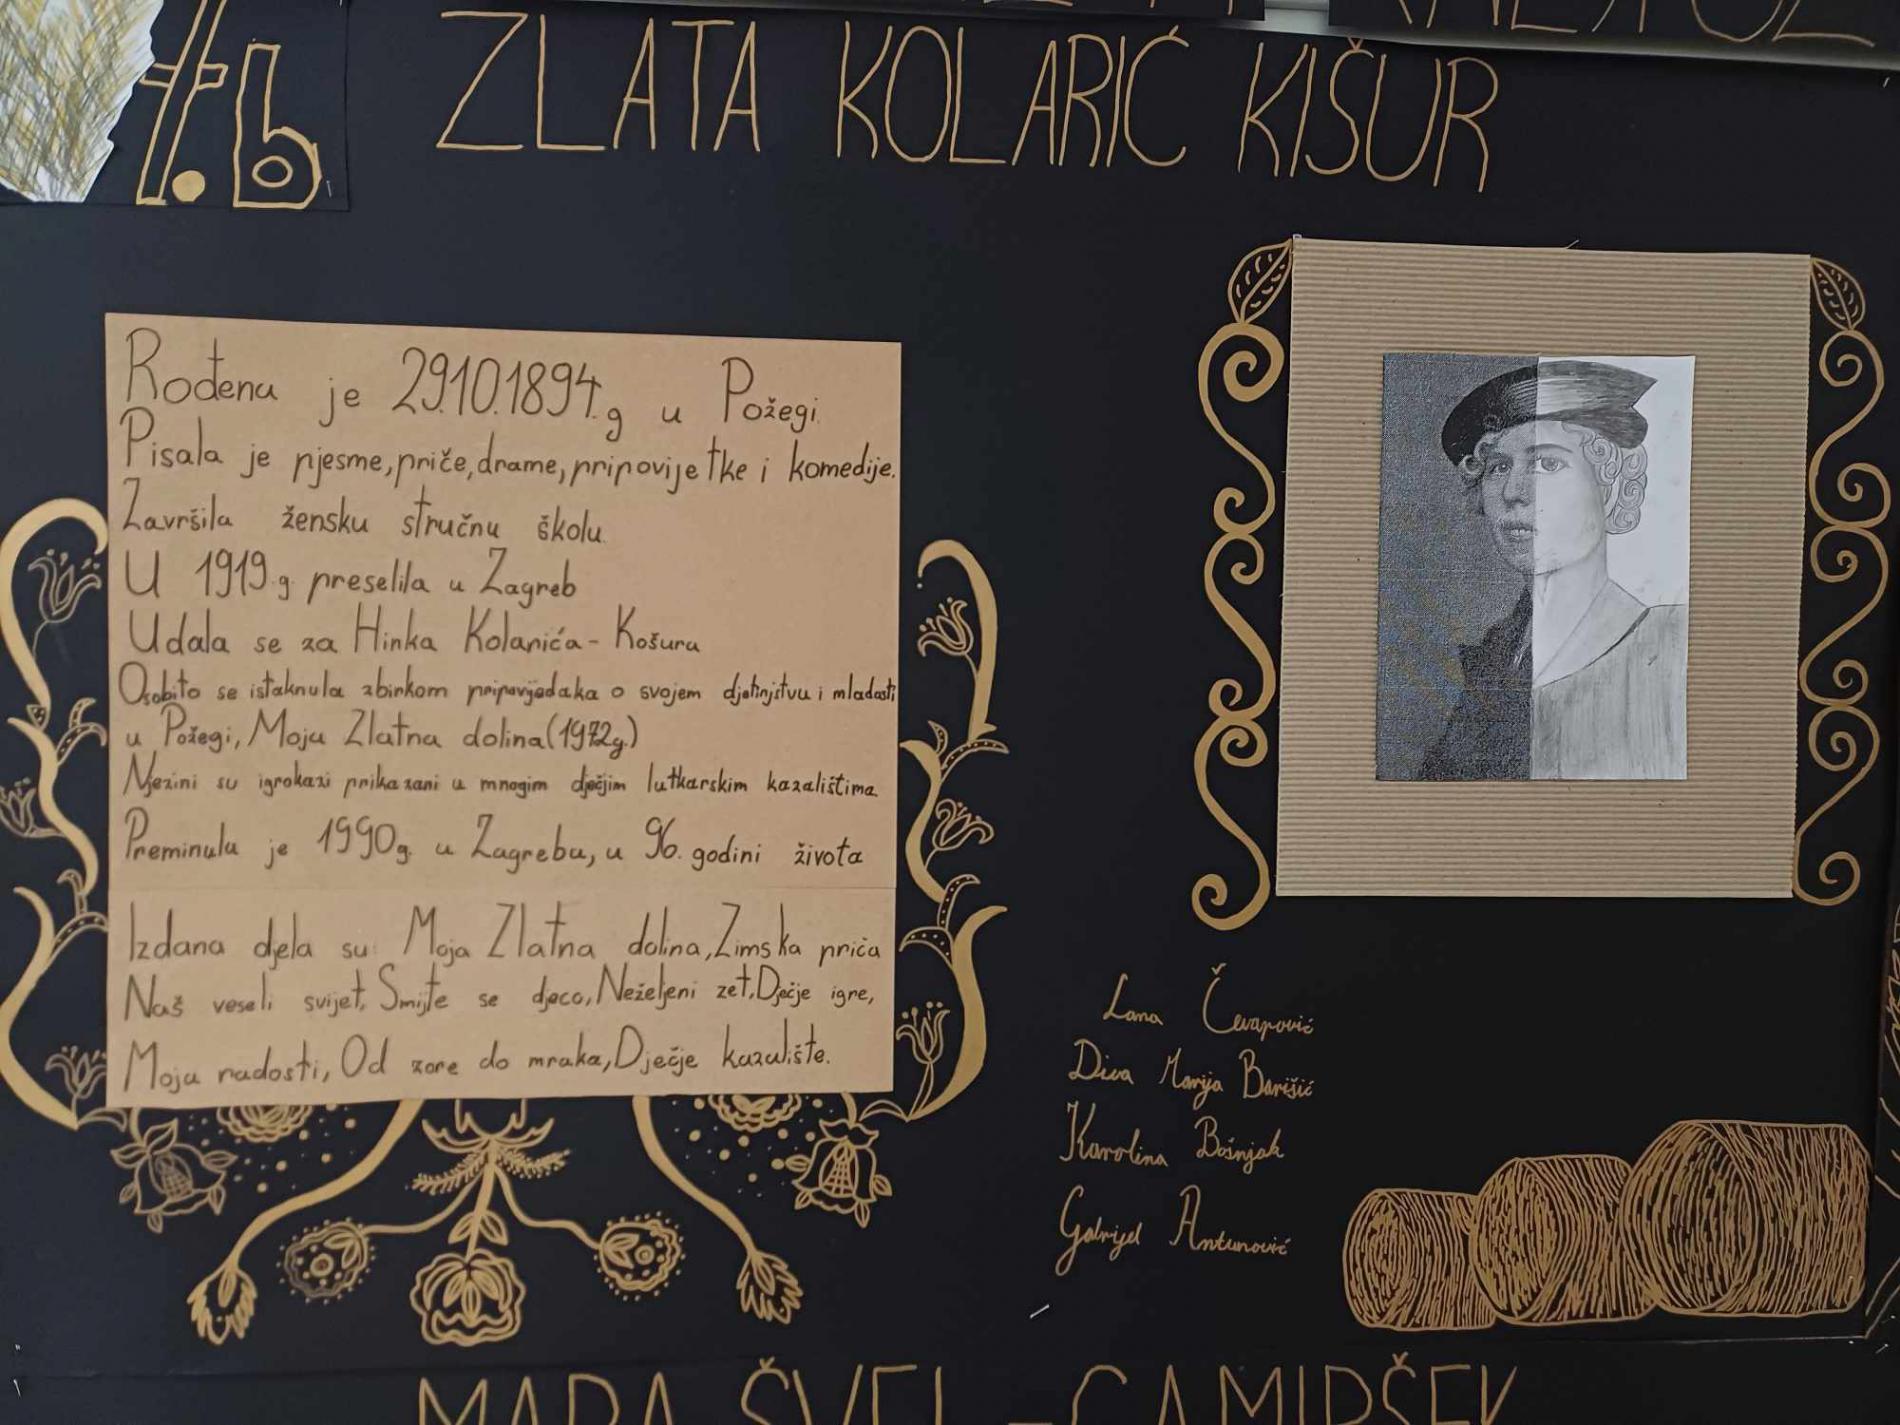 7.b
ZLATA KOLARIĆ KIŠUR
Rođena je 29.10.1894.g u Požegi.
Pisala je pjesme, priče, drame, pripovijetke i komedije.
Završila žensku stručnu školu.
U 1919.g. preselila u Zagreb
Udala se za Hinka Kolarića-Košura
Osobito se istaknula zbirkom pripovjedaka o svojem djetinjstvu i mladosti
u Požegi, Moja Zlatna dolina (1972g.)
Njezini su igrokazi prikazani u mnogim dječjim lutkarskim kazalištima.
Preminula je 1990g. u Zagrebu, u 96. godini života
Izdana djela su: Moja Zlatna dolina, Zimska priča
Naš veseli svijet, Smijte se djeco, Neželjeni zet, Dječje igre,
Moja radosti, Od zore do mraka, Dječje kazalište.
Lana Čevapović
Diva Marija Barišić
Karolina Bošnjak
Gabrijel Antunović
MARA ŠVEL-GAMIRŠEK